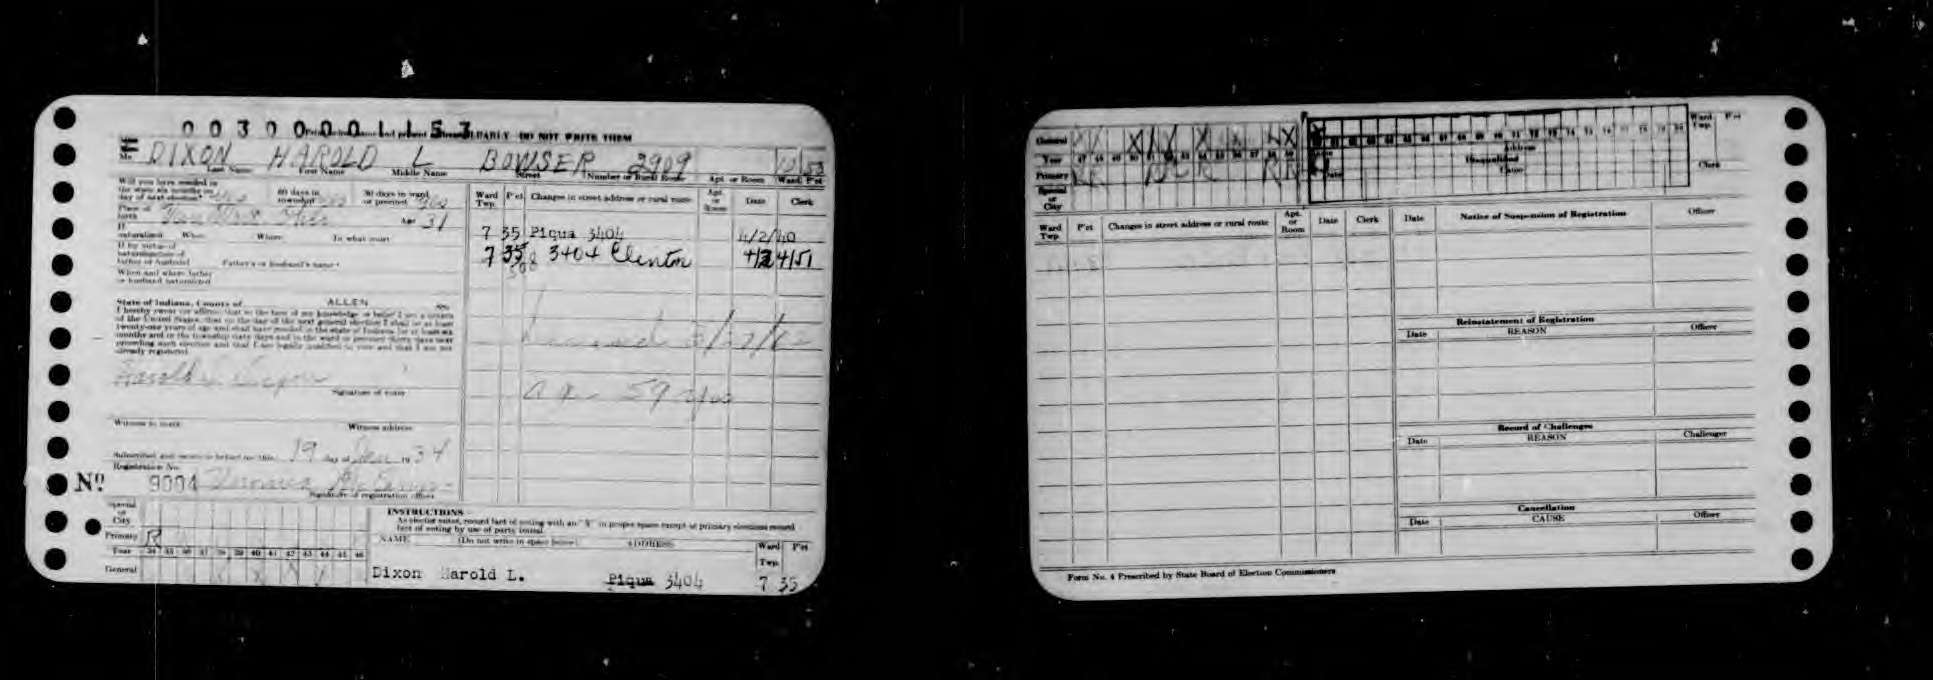 0030000 1157
CLEARLY DO NOT WRITE THEM
DIXON HAROLD L BOWSER 2909 10 53
Last Name First Name Middle Name Street Number or Rural Route Apt. or Room Ward P'ct
Will you have resided in the state six months on day of next election? Yes 60 days in township Yes 30 days in ward or precinct Yes
Place of birth Age 31
If naturalized When Where In what court
If by virtue of naturalization of father or husband Father's or husband's name
When and where father or husband naturalized
State of Indiana, County of ALLEN ss:
I hereby swear (or affirm) that to the best of my knowledge or belief I am a citizen
of the United States, that on the day of the next general election I shall be at least
twenty-one years of age and shall have resided in the state of Indiana for at least six
months and in the township sixty days and in the ward or precinct thirty days next
preceding such election and that I am legally qualified to vote and that I am not
already registered.
Harold L. Dixon
Signature of voter
Witness to mark Witness address
Subscribed and sworn to before me this 19 day of 19 34
Registration No.
No 9004
Signature of registration officer
Ward Twp. P'ct Changes in street address or rural route Apt. or Room Date Clerk
7 35 Piqua 3404 4/2/40
7 35 3404 Clinton 4/24/51
59 yrs
Special or City
Primary R
Year 34 35 36 37 38 39 40 41 42 43 44 45 46
General
INSTRUCTIONS
As elector votes, record fact of voting with an "X" in proper space except at primary elections record
fact of voting by use of party initial.
NAME (Do not write in space below) ADDRESS Ward Twp. P'ct
Dixon Harold L. Piqua 3404 7 35
General
Year 47 48 49 50 51 52 53 54 55 56 57 58 59
Primary
Special or City
Address
Disqualified
Date Cause
Ward Twp. P'ct
Clerk
Ward Twp. P'ct Changes in street address or rural route Apt. or Room Date Clerk
Date Notice of Suspension of Registration Officer
Reinstatement of Registration
Date REASON Officer
Record of Challenges
Date REASON Challenger
Cancellation
Date CAUSE Officer
Form No. 4 Prescribed by State Board of Election Commissioners